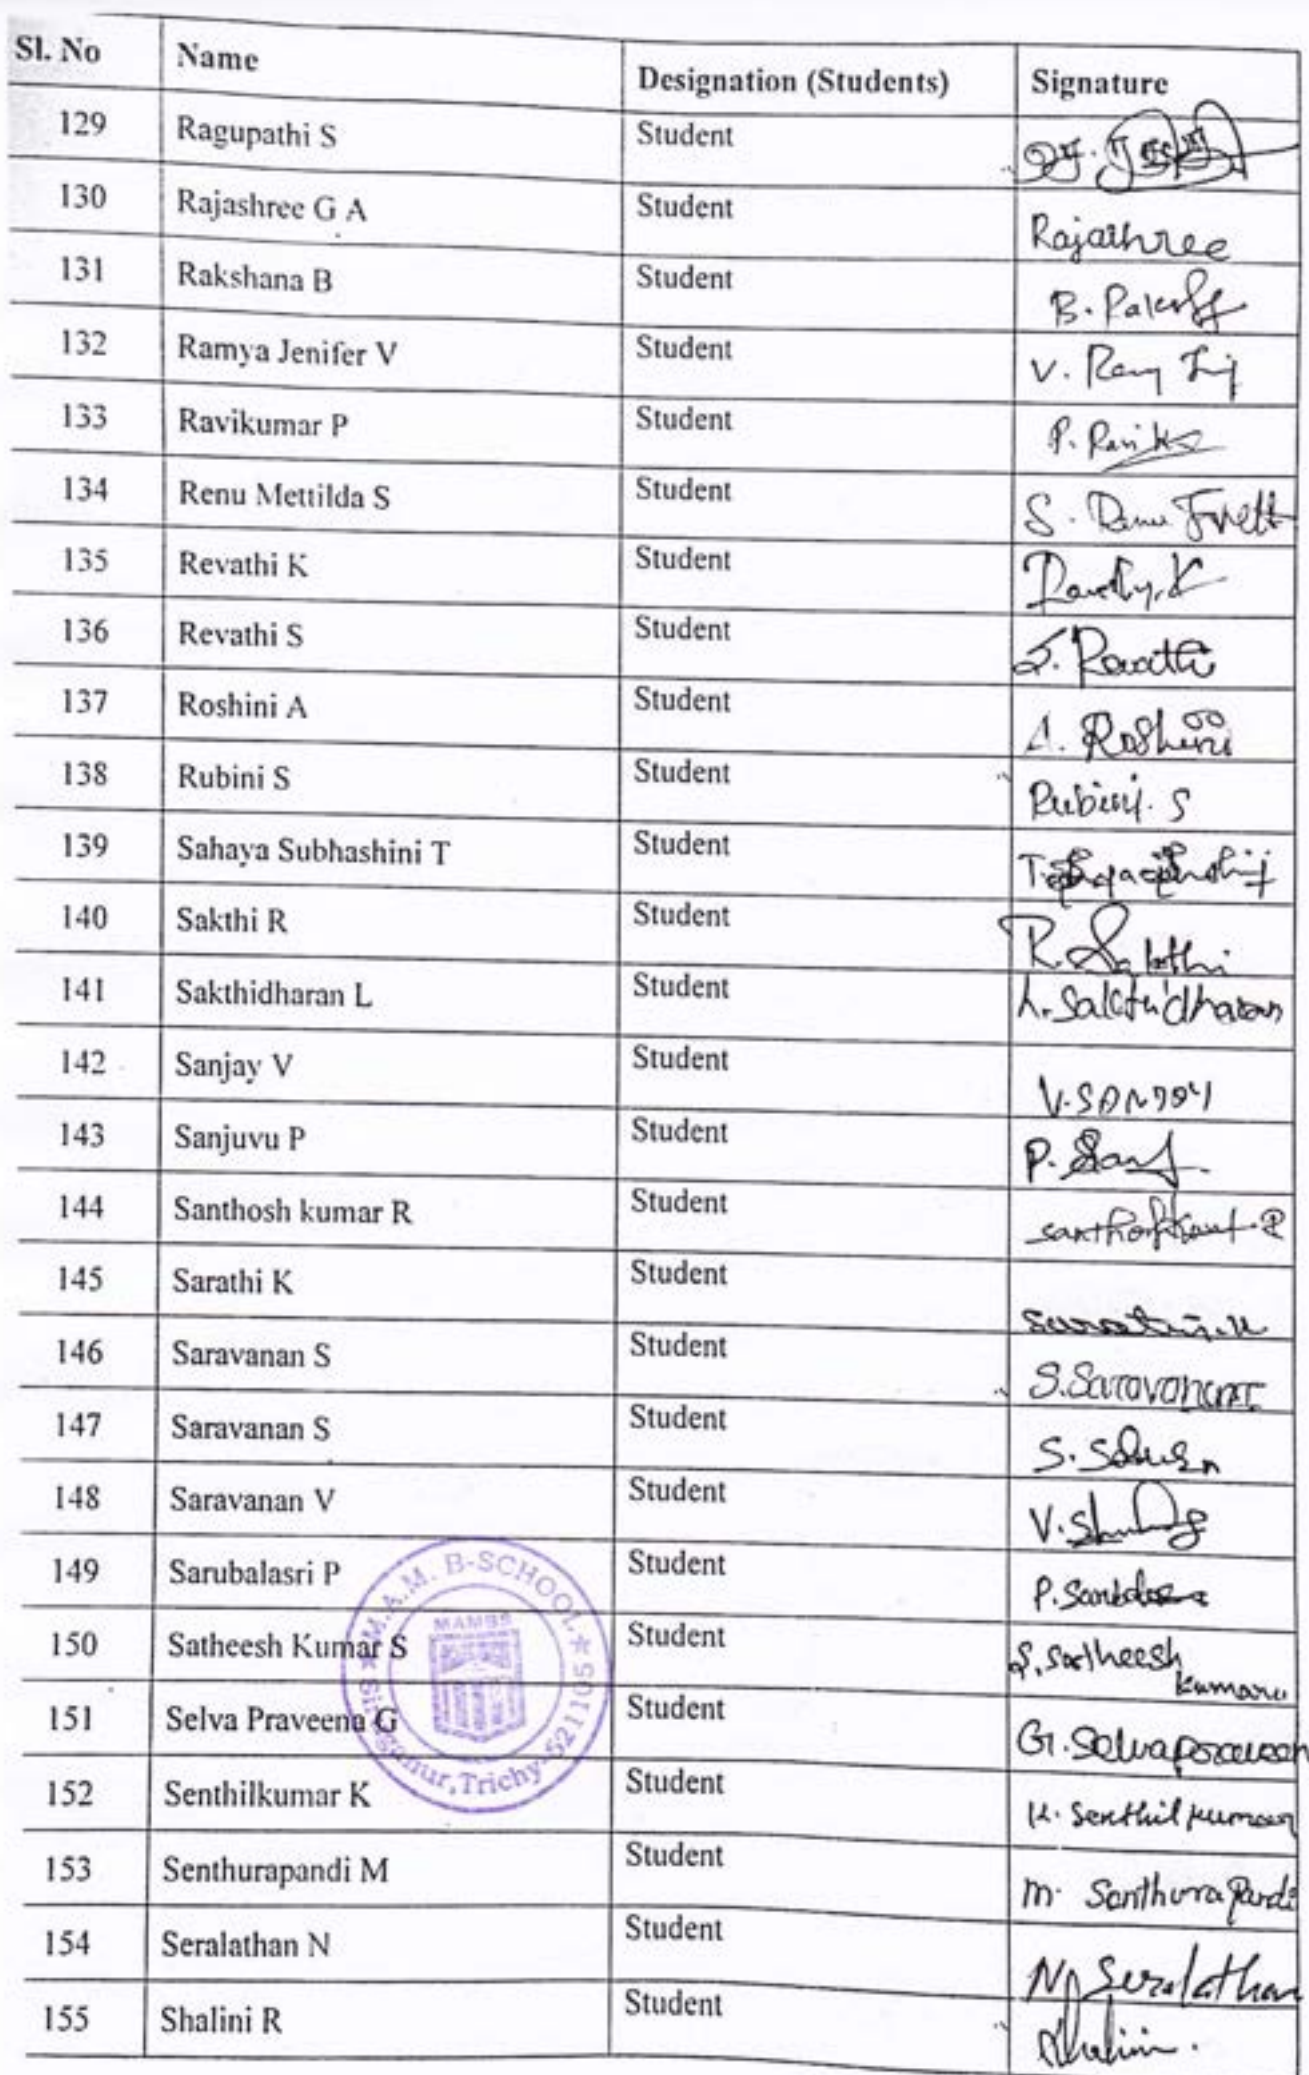 Sl. No Name Designation (Students) Signature
129 Ragupathi S Student
130 Rajashree G A Student Rajashree
131 Rakshana B Student B.
132 Ramya Jenifer V Student V.
133 Ravikumar P Student P.
134 Renu Mettilda S Student S.
135 Revathi K Student
136 Revathi S Student S. Revathi
137 Roshini A Student A. Roshini
138 Rubini S Student Rubini. S
139 Sahaya Subhashini T Student
140 Sakthi R Student R. Sakthi
141 Sakthidharan L Student L. Sakthidharan
142 Sanjay V Student V. SANJAY
143 Sanjuvu P Student P.
144 Santhosh kumar R Student
145 Sarathi K Student
146 Saravanan S Student S. Saravanan
147 Saravanan S Student S.
148 Saravanan V Student V.
149 Sarubalasri P Student P.
150 Satheesh Kumar S Student S. Satheesh
Kumar
151 Selva Praveena G Student G. Selvapraveen
152 Senthilkumar K Student K. Senthil kumar
153 Senthurapandi M Student M. Senthura Pandi
154 Seralathan N Student N. Seralathan
155 Shalini R Student Shalini.
M.A.M. B-SCHOOL
MAMBS
Siruganur, Trichy-521105